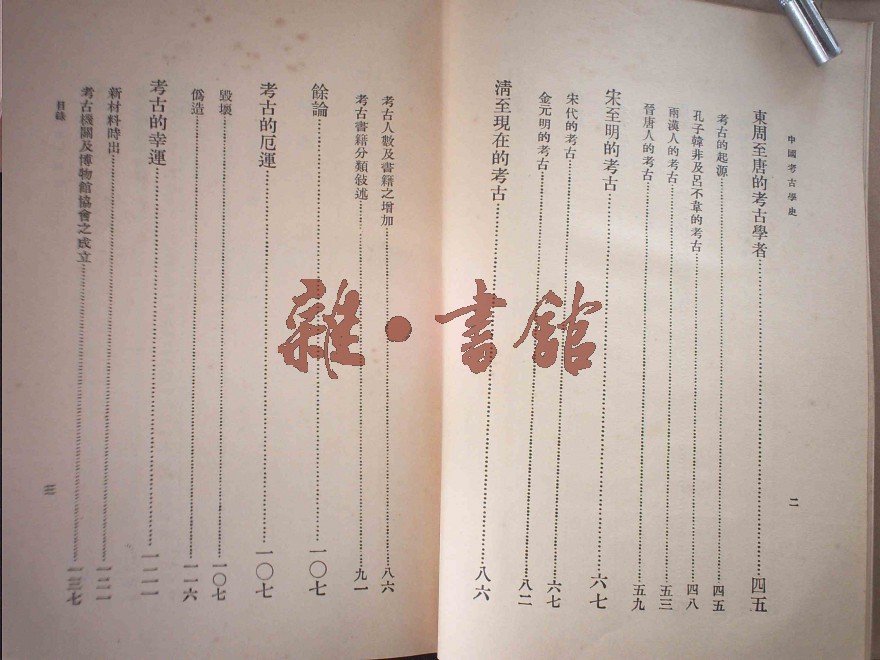 中國考古學史
二
東周至唐的考古學者……四五
考古的起源……四五
孔子韓非及呂不韋的考古……四八
兩漢人的考古……五三
晉唐人的考古……五九
宋至明的考古……六七
宋代的考古……六七
金元明的考古……八二
清至現在的考古……八六
考古人數及書籍之增加……八六
考古書籍分類敍述……九一
餘論……一〇七
考古的厄運……一〇七
毀壞……一〇七
僞造……一一六
考古的幸運……一二一
新材料時出……一二一
考古機關及博物館協會之成立……一三七
目錄
三
雜·書館